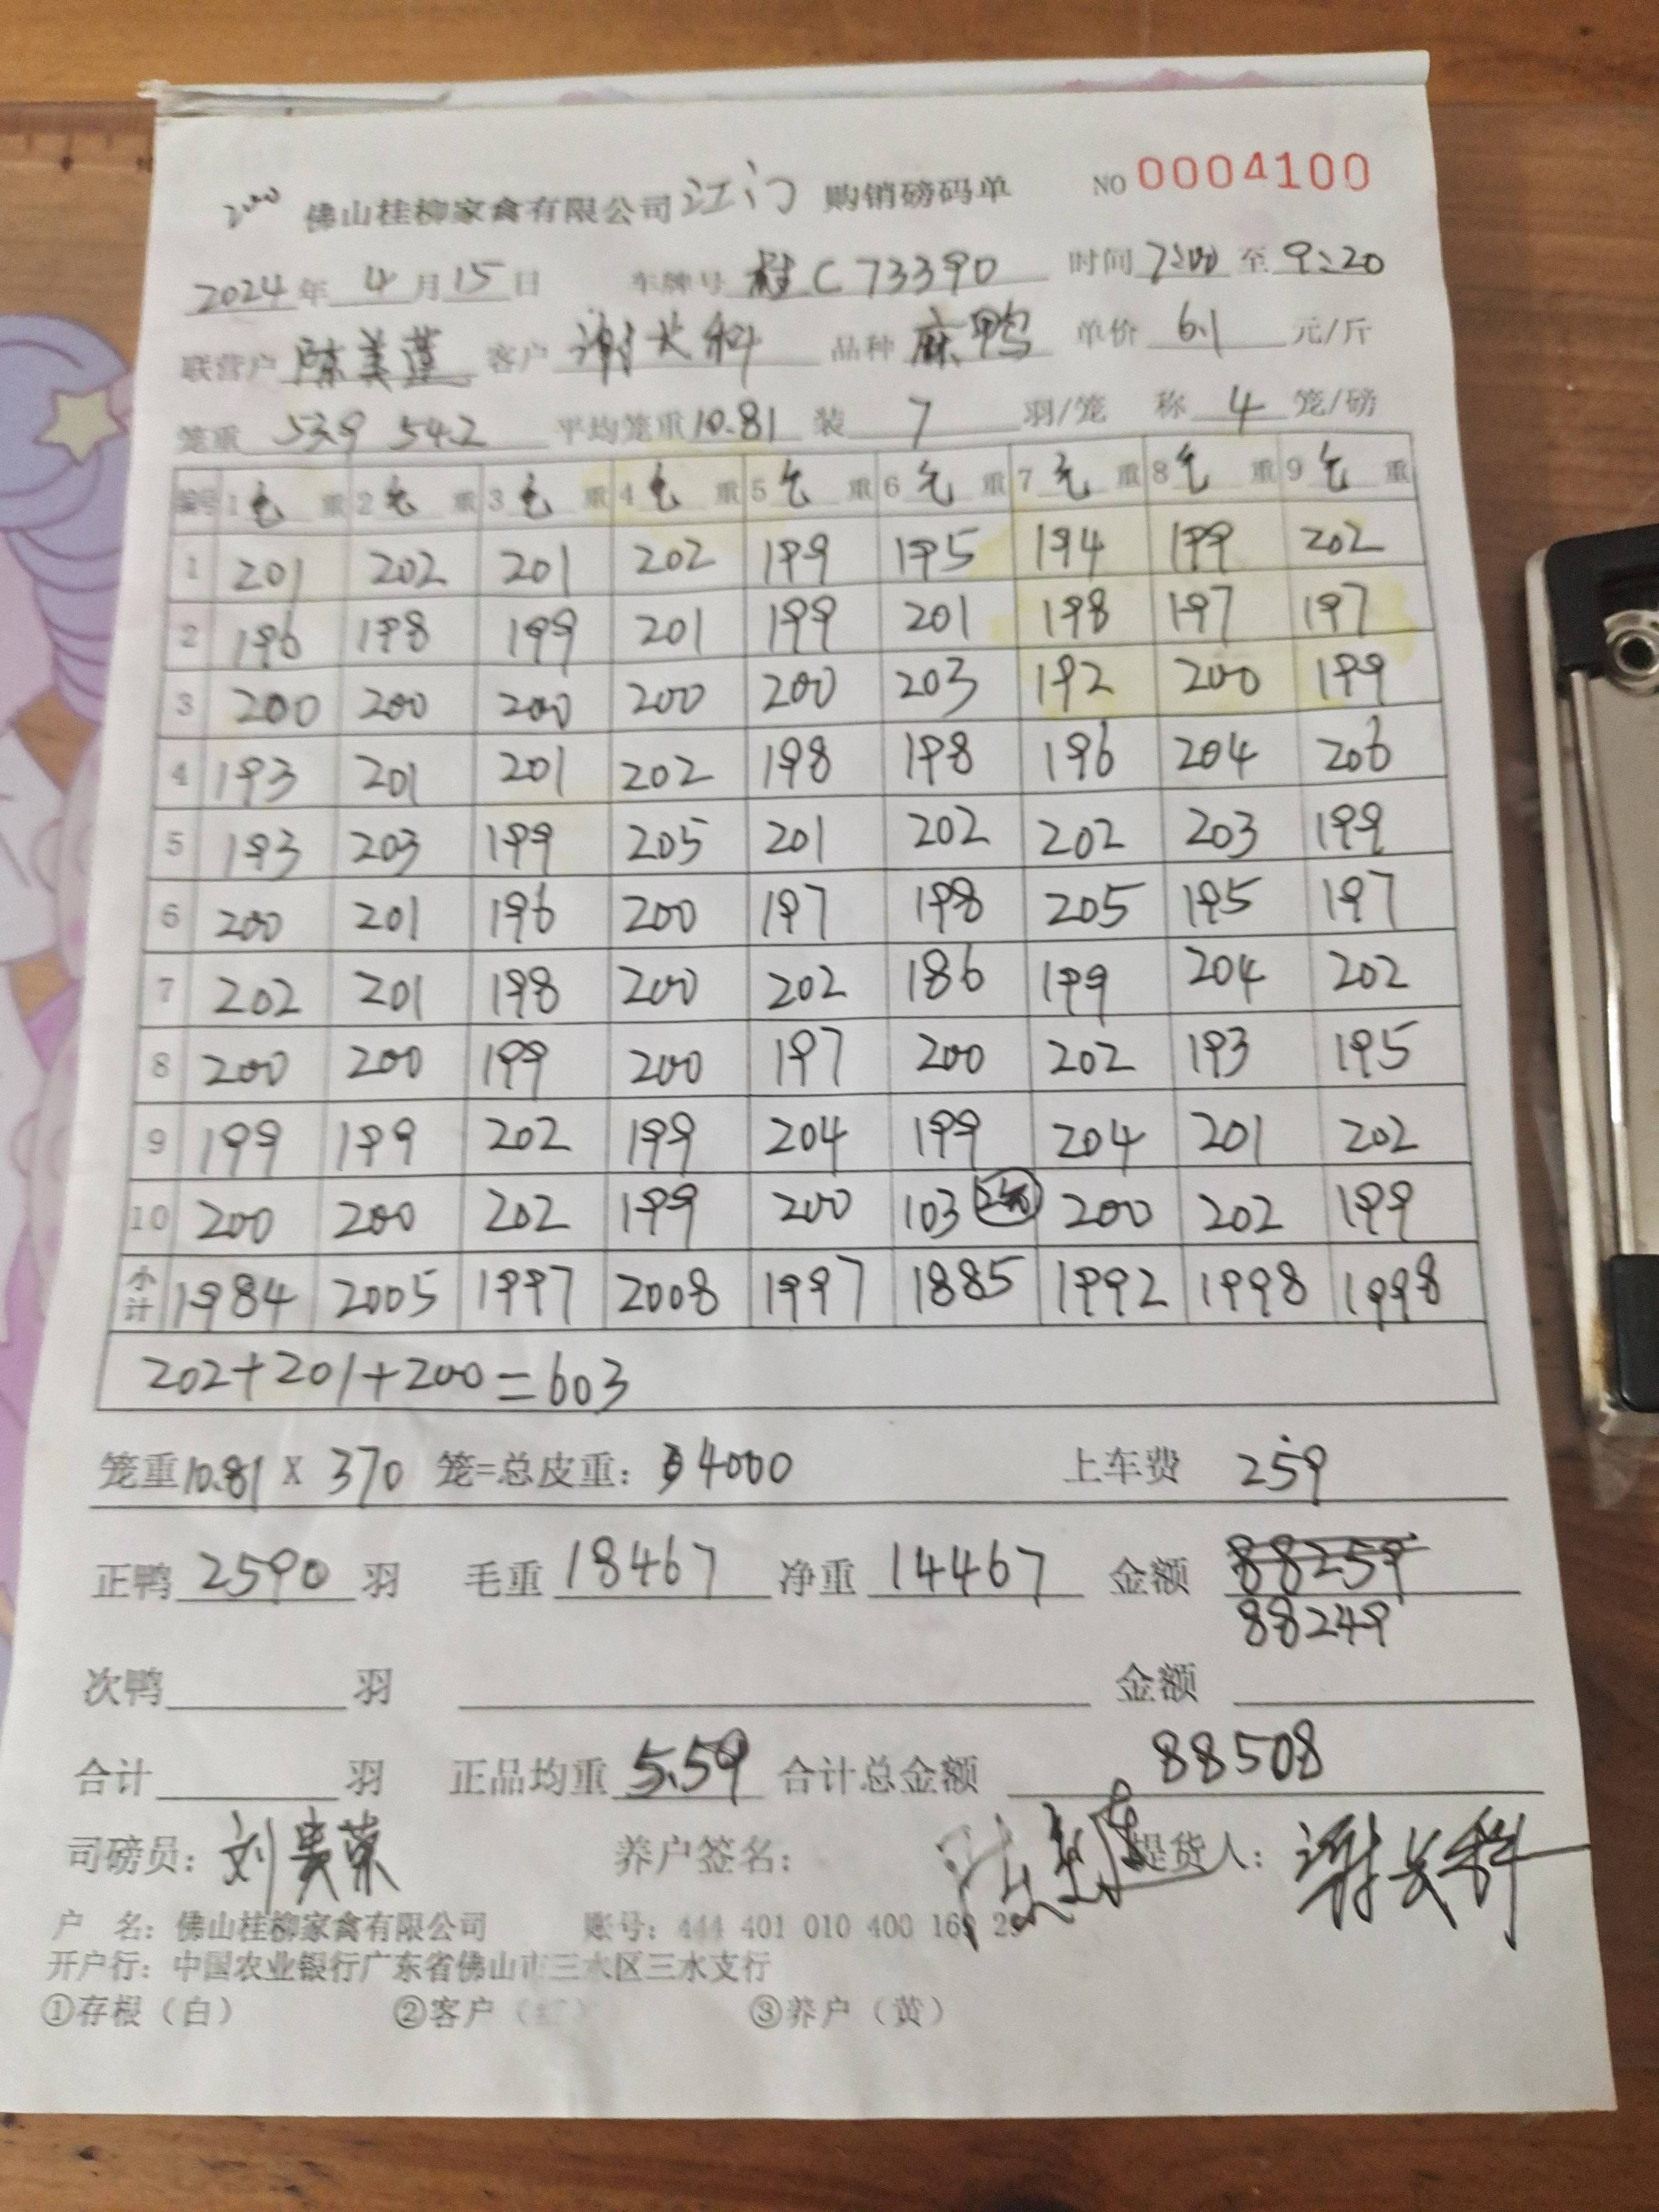 佛山桂柳家禽有限公司 江门 购销磅码单 NO 0004100
2024年 4月15日 车牌号 桂C73390 时间 7:00 至 9:20
联营户 陈美莲 客户 谢长科 品种 麻鸭 单价 6.1 元/斤
笼重 53.9 54.2 平均笼重 10.81 装 7 羽/笼 称 4 笼/磅
编号 1 毛重 2 毛重 3 毛重 4 毛重 5 毛重 6 毛重 7 毛重 8 毛重 9 毛重
1 201 202 201 202 199 195 194 199 202
2 196 198 199 201 199 201 198 197 197
3 200 200 200 200 200 203 192 200 199
4 193 201 201 202 198 198 196 204 206
5 193 203 199 205 201 202 202 203 199
6 200 201 196 200 197 198 205 195 197
7 202 201 198 200 202 186 199 204 202
8 200 200 199 200 197 200 202 193 195
9 199 199 202 199 204 199 204 201 202
10 200 200 202 199 200 103 200 202 199
小计 1984 2005 1997 2008 1997 1885 1992 1998 1998
202+201+200=603
笼重10.81 X 370 笼=总皮重: 4000 上车费 259
正鸭 2590 羽 毛重 18467 净重 14467 金额 88259
88249
次鸭 羽 金额
合计 羽 正品均重 5.59 合计总金额 88508
司磅员: 刘贵荣 养户签名: 陈美莲 提货人: 谢长科
户 名: 佛山桂柳家禽有限公司 账号: 444 401 010 400 16
开户行: 中国农业银行广东省佛山市三水区三水支行
①存根(白) ②客户(红) ③养户(黄)